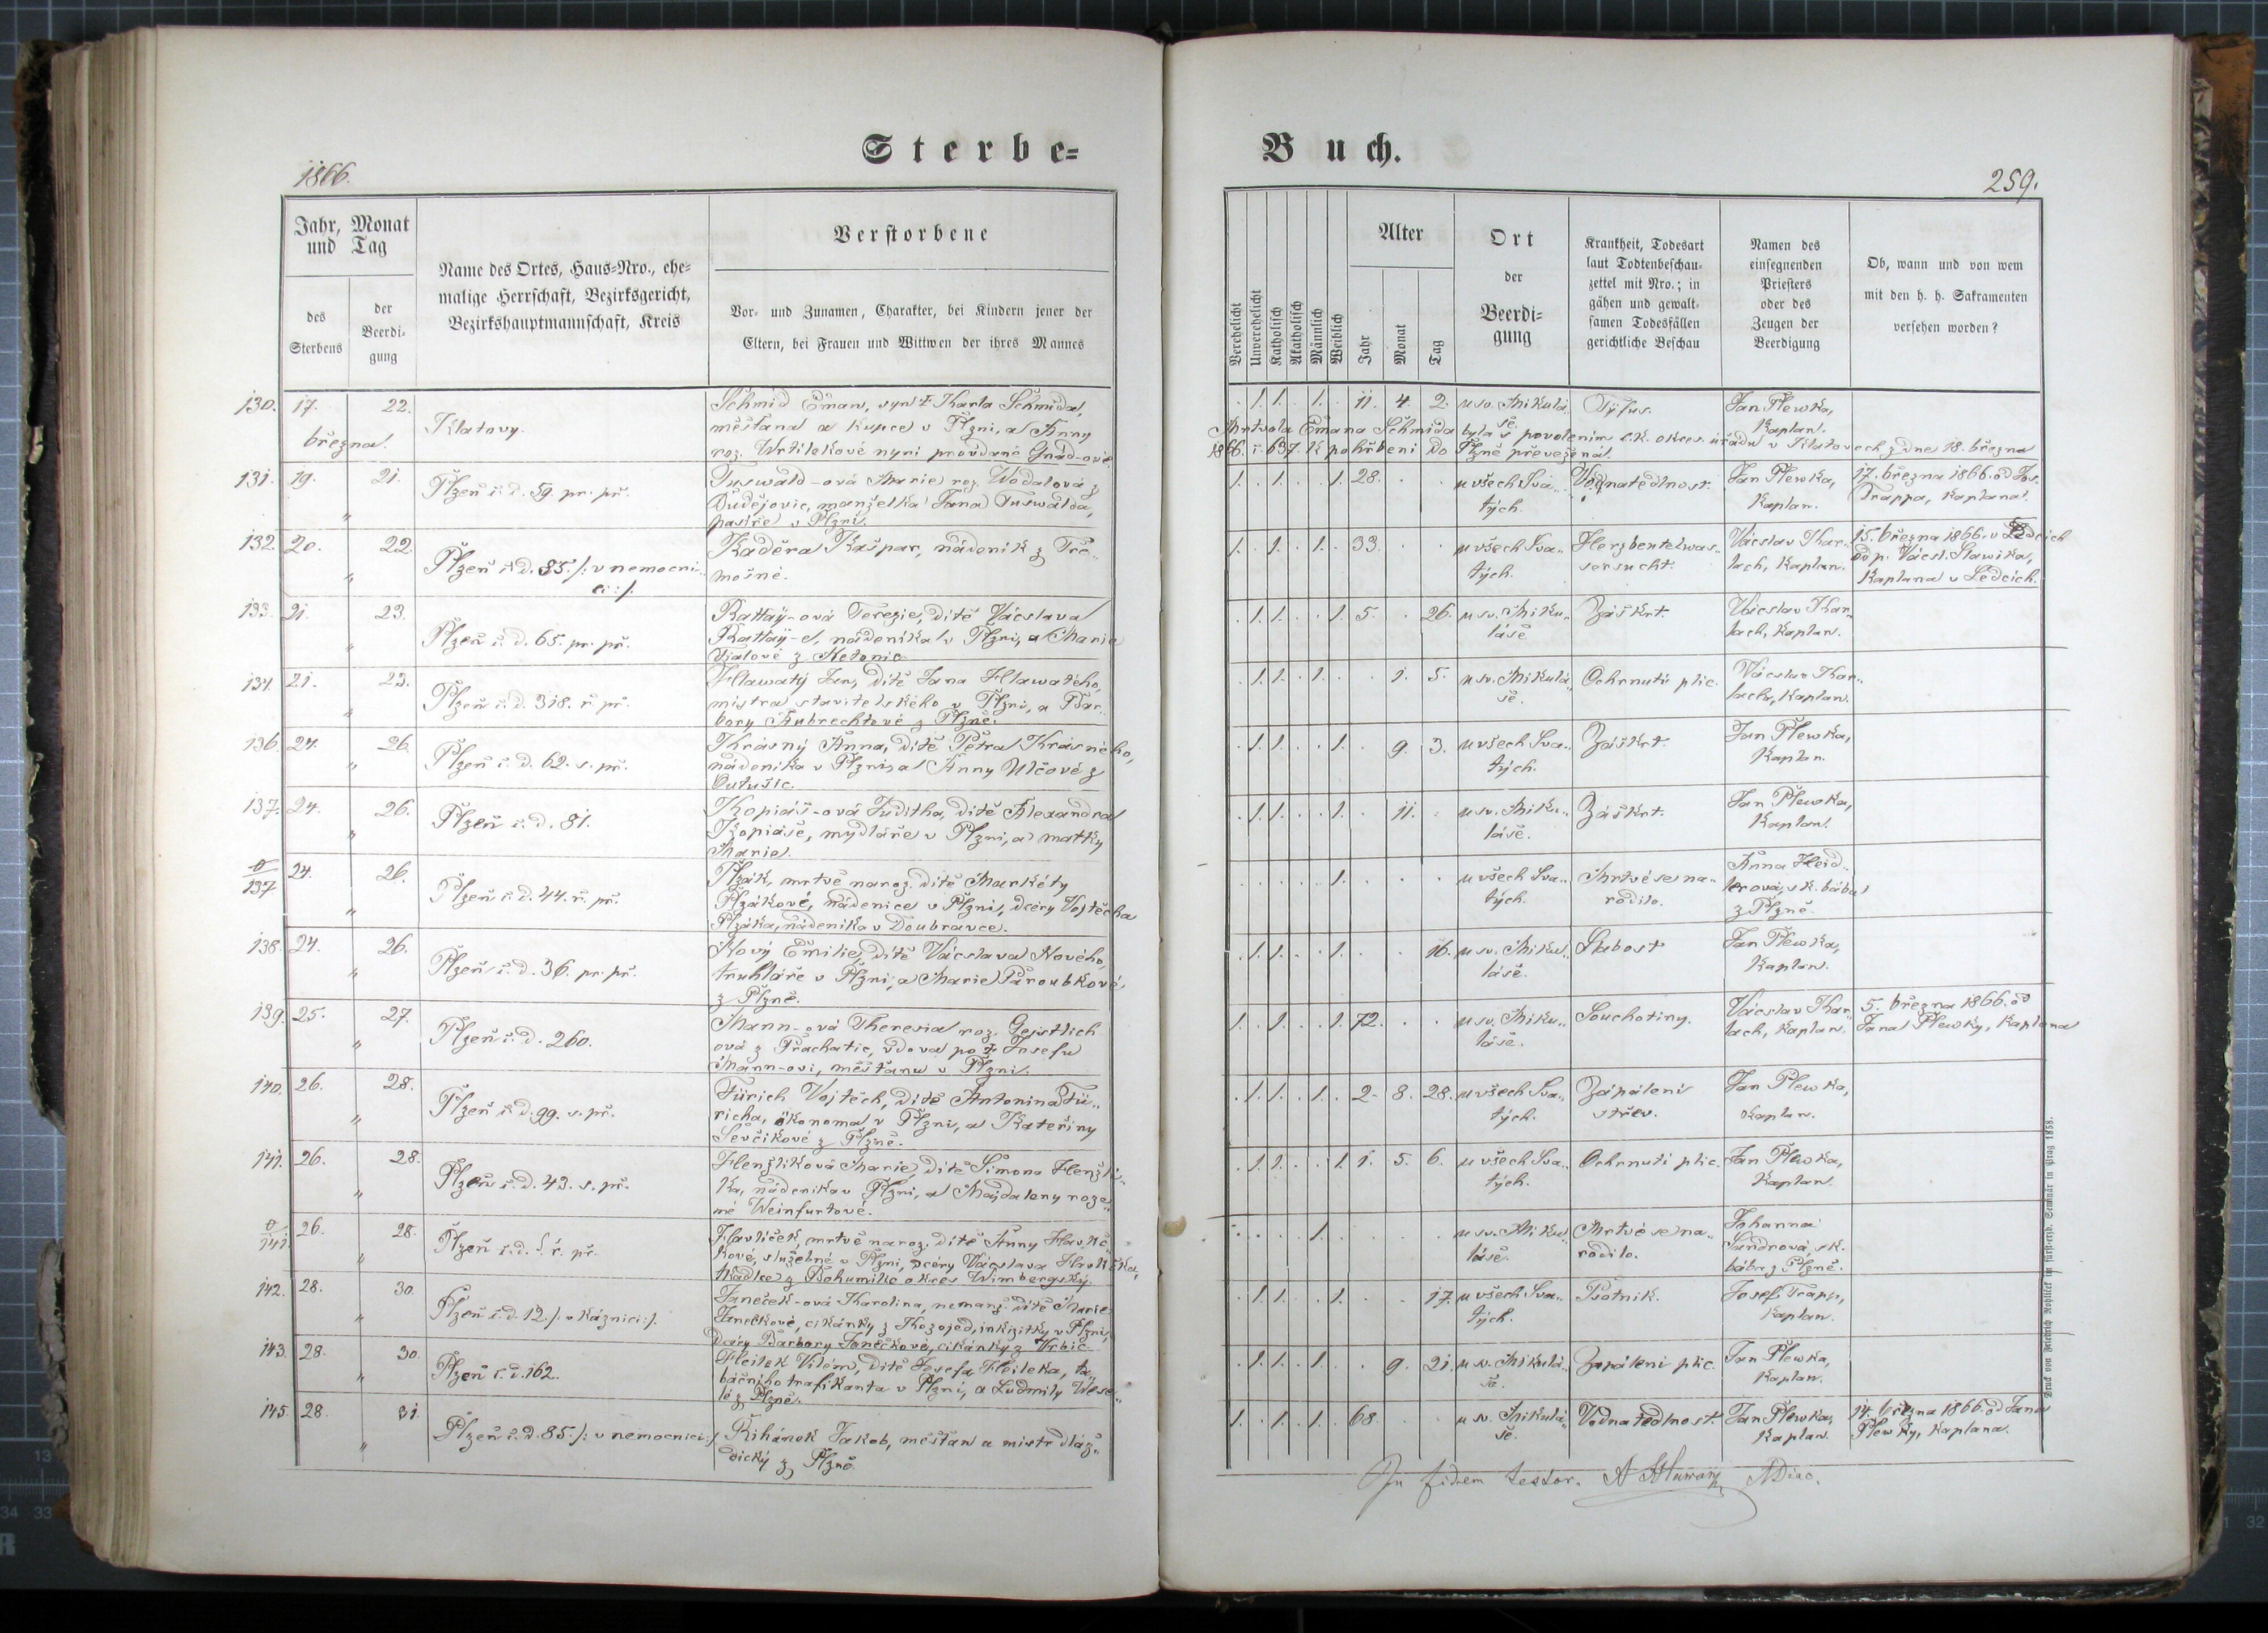 Sterbe=
Buch.
1866.
259.
Jahr, Monat
und Tag
des
Sterbens
der
Beerdi-
gung
Name des Ortes, Haus=Nro., ehe=
malige Herrschaft, Bezirksgericht,
Bezirkshauptmannschaft, Kreis
Verstorbene
Vor- und Zunamen, Charakter, bei Kindern jener der
Eltern, bei Frauen und Wittwen der ihres Mannes
Verehelicht
Unverehelicht
Katholisch
Akatholisch
Männlich
Weiblich
Alter
Jahr
Monat
Tag
Ort
der
Beerdi-
gung
Krankheit, Todesart
laut Todtenbeschau-
zettel mit Nro.; in
gähen und gewalt-
samen Todesfällen
gerichtliche Beschau
Namen des
einsegnenden
Priesters
oder des
Zeugen der
Beerdigung
Ob, wann und von wem
mit den h. h. Sakramenten
versehen worden?
130. 17. 22. března Klatovy. Schmid Eman, syn † Karla Schmida,
měšťana a kupce v Plzni, a Anny
roz. Wrtilekové nyni provdané Gnad-ové.
1. 1. 1. 11. 4. 2. u sv. Mikulá- Tyfus. Jan Plewka,
še. Kaplan.
Mrtvola Emana Schmida byla s povolením c.k. okres. úřadu v Klatovech z dne 18. března
1866. č. 637. k pohřbeni do Plzně převežená.
131. 19. 21. " Plzeň č. d. 59. pr. př. Tuswald-ová Marie roz. Wodalová z
Budějovic, manželka Jana Tuswalda,
pasíře v Plzni.
1. 1. 1. 28. u všech Sva- Vodnatedlnost. Jan Plewka, 17. března 1866. od Jos.
tých. Kaplan. Trappa, Kaplana.
132. 20. 22. " Plzeň č. d. 85. /: v nemocni-
ci :/. Kaděra Kašpar, nádeník z Tře-
mošné.
1. 1. 1. 33. u všech Sva- Herzbeutelwas- Václav Kar- 15. března 1866. v Ledcích
tých. sersucht. lach, Kaplan. od p. Václ. Slawíka,
Kaplana v Ledcích.
133. 21. 23. " Plzeň č. d. 65. pr. př. Rattay-ová Terezie, dítě Václava
Rattay-e, nádeníka v Plzni, a Marie
1. 1. 1. 5. 26. u sv. Miku- Záškrt. Václav Kar-
láše lach, Kaplan.
134. 21. 23. " Plzeň č. d. 318. ř. př. Hlawatý Jan, dítě Jana Hlawatého,
mistra stavitelského v Plzni, a Bar-
bory Aubrechtové z Plzně.
1. 1. 1. 1. 5. u sv. Mikulá- Ochrnutí plic. Václav Kar-
še. lach, Kaplan.
136. 24. 26. " Plzeň č. d. 62. s. př. Krásný Anna, dítě Petra Krásného,
nádeníka v Plzni, a Anny Ulčové z
1. 1. 1. 9. 3. u všech Sva- Záškrt. Jan Plewka,
tých. Kaplan.
137. 24. 26. " Plzeň č. d. 81. Kopiáš-ová Juditha, dítě Alexandra
Kopiáše, mydláře v Plzni, a matky
Marie.
1. 1. 1. 11. u sv. Miku- Záškrt. Jan Plewka,
láše. Kaplan.
0/137 24. 26. " Plzeň č. d. 44. ř. př. Plzák, mrtvě naroz. dítě Markéty
Plzákové, nádenice v Plzni, dcéry Vojtěcha
Plzáka, nádeníka v Doubravce.
1. u všech Sva- Mrtvé se na- Anna Heid-
tých. rodilo. lerová, sk. bába
z Plzně.
138. 24. 26. " Plzeň č. d. 36. pr. př. Nový Emilie, dítě Václava Nového,
truhláře v Plzni, a Marie Paroubkové
z Plzně.
1. 1. 1. 16. u sv. Miku- Slabost Jan Plewka,
láše. Kaplan.
139. 25. 27. " Plzeň č. d. 260. Mann-ová Theresia roz. Geistlich
ová z Prachatic, vdova po † Josefu
Mann-ovi, měšťanu v Plzni.
1. 1. 1. 72. u sv. Miku- Souchotiny. Václav Kar- 5. března 1866. od
láše. lach, Kaplan. Jana Plewky, Kaplana
140. 26. 28. " Plzeň č. d. 99. s. př. Fürich Vojtěch, dítě Antonina Fü-
richa, ökonoma v Plzni, a Kateřiny
Ševčíkové z Plzně.
1. 1. 1. 2. 8. 28. u všech Sva- Zápálení Jan Plewka,
tých. střev. Kaplan.
141. 26. 28. " Plzeň č. d. 43. s. př. Henžlíková Marie, dítě Šimona Henžlí-
ka, nádeníka v Plzni, a Majdaleny roze-
né Weinfurtové.
1. 1. 1. 1. 5. 6. u všech Sva- Ochrnutí plic. Jan Plewka,
tých. Kaplan.
0/141. 26. 28. " Plzeň č. d. ř. př. Havlíček, mrtvě naroz. dítě Anny Havlíč-
kové, služebné v Plzni, dcéry Václava Havlíčka,
tkadlce z Bohumilic okres Wimbergský.
1. u sv. Miku- Mrtvé se na- Johanna
láše. rodilo. Sandrová, sk.
bába z Plzně.
142. 28. 30. " Plzeň č. d. 12. /: v káznici :/. Janeček-ová Karolina, nemanž. dítě Marie
Janečkové, cikánky z Kozojed, inkizitky v Plzni,
dcéry Barbory Janečkové, cikánky z Vrbic
1. 1. 1. 17. u všech Sva- Psotník. Josef Trapp,
tých. Kaplan.
143. 28. 30. " Plzeň č. d. 162. Fleilek Vilém, dítě Josefa Fleileka, ta-
báčního trafikanta v Plzni, a Ludmily Wese-
lé z Plzně.
1. 1. 1. 9. 21. u sv. Mikulá- Zapálení plic. Jan Plewka,
še. Kaplan.
145. 28. 31. " Plzeň č. d. 85. /: v nemocnici :/ Řihánek Jakob, měšťan a mistr dláž-
dický z Plzně.
1. 1. 1. 68. u sv. Mikulá- Vodnatedlnost. Jan Plewka, 14. března 1866. od Jana
še. Kaplan. Plewky, Kaplana.
In fidem testor.
Druck von Friedrich Rohliček im fürst-erzb. Seminär in Prag 1858.